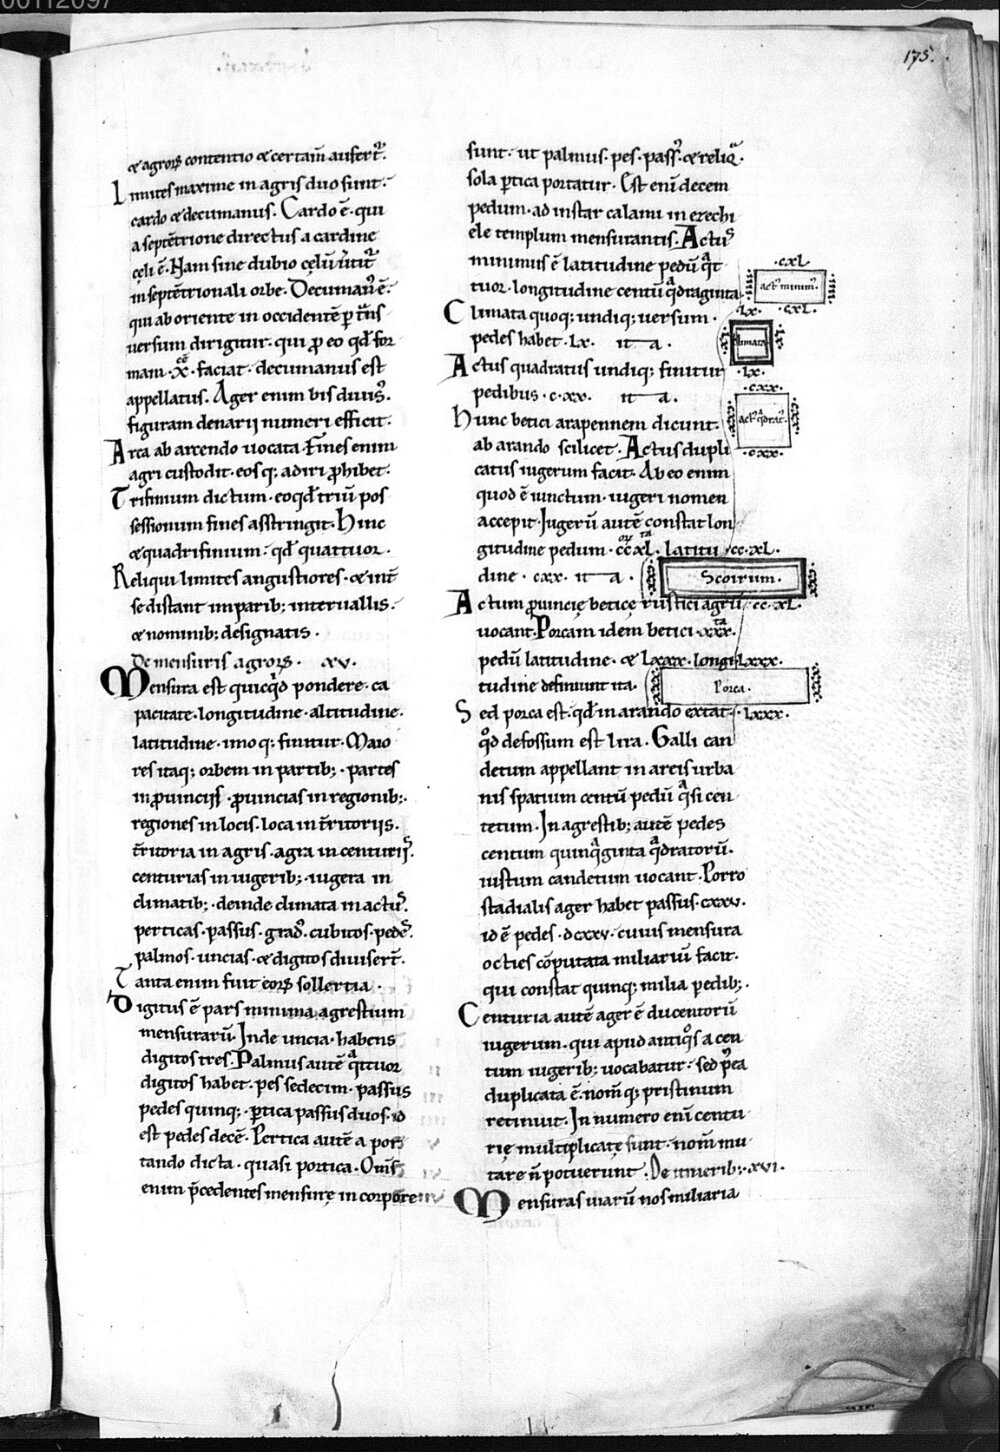 00112097
175.
& agroꝝ contentio & certam̄ aufert᷑.
Limites maxime in agris duo sunt.
cardo & decumanus. Cardo ē. qui
a septētrione directus a cardine
cęli ē. Nam sine dubio cęlū ūtit᷑
in septētrionali orbe. Decuman᷒ ē.
qui ab oriente in occidentē ꝑ t̄ns
uersum dirigitur. qui ꝓ eo qđ for
mam .x. faciat. decumanus est
appellatus. Ager enim bis diuis᷒.
figuram denarij numeri efficit.
Arca ab arcendo uocata. Fines enim
agri custodit. eosq; adiri ꝓhibet.
Trifinium dictum. eo qđ triū pos
sessionum fines asstringit. Hinc
& quadrifinium. qđ quattuor.
Reliqui limites angustiores. & int̄
se distant imparib; interuallis.
& nominib; designatis.
De mensuris agroꝝ. xv.
Mensura est quicq̇d pondere. ca
pacitate. longitudine. altitudine.
latitudine. imoq; finitur. Maio
res itaq; orbem in partib;. partes
in ꝓuincijs. ꝓuincias in regionib;.
regiones in locis. loca in t̄ritorijs.
t̄ritoria in agris. agra in centurijs.
centurias in iugerib;. iugera in
climatib;. deinde climata in actu᷒.
perticas. passus. grad᷒. cubitos. pedes.
palmos. uncias. & digitos diuisert̄.
Tanta enim fuit eoꝝ sollertia.
Digitus ē pars minima agrestium
mensurarū. Inde uncia. habens
digitos tres. Palmus autē qͣttuor
digitos habet. pes sedecim. passus
pedes quinq;. ꝑtica passus duos. id
est pedes decē. Pertica autē a por
tando dicta. quasi portica. Om̄s
enim p̄cedentes mensurę in corpore
sunt. ut palmus. pes. pass᷒. & reliqͣ.
sola ꝑtica portatur. Est eni decem
pedum. ad instar calami in ezechi
ele templum mensurantis. Actu᷒
minimus ē latitudine pedū qͣt
tuor. longitudine centū qͣdraginta.
.cxl.
act᷒ minim᷒.
.cxl.
Climata quoq; undiq; uersum.
pedes habet .lx. it—a.
.lx.
climata
.lx.
Actus quadratus undiq; finitur
pedibus .c.xx. it—a.
.cxx.
act᷒ qͣdrat᷒.
.cxx.
Hunc betici arapennem dicunt.
ab arando scilicet. Actus dupli
catus iugerum facit. Ab eo enim
quod ē iunctum. iugeri nomen
accepit. Iugerū autē constat lon
gitudine pedum .ccxl. latitu
dine .cxx. it—a.
.cc.xl.
Scoirum.
.cc.xl.
Actum ꝓuincię betice rustici agnū
uocant. Porcam idem betici .xxx.
pedū latitudine. & lxxx. longi
tudine definiunt ita.
.lxxx.
Porca.
.lxxx.
Sed porca est. qđ in arando extat.
qͦd defossum est lira. Galli can
detum appellant in areis urba
nis spatium centū pedū qͣsi cen
tetum. In agrestib; autē pedes
centum quinqͣginta qͣdratorū.
iustum candetum uocant. Porro
stadialis ager habet passus .cxxv.
id ē pedes .dcxxv. cuius mensura
octies cōputata miliariū facit.
qui constat quinq; milia pedib;.
Centuria autē ager ē ducentorū
iugerum. qui apud antiqͦs a cen
tum iugerib; uocabatur. sed p̄ea
duplicata ē. nom̄q; pristinum
retinuit. In numero eni centu
rię multiplicatę sunt. nom̄ mu
tare n̄ potuerunt. De itinerib;. xvi.
Mensuras uiarū nos miliaria